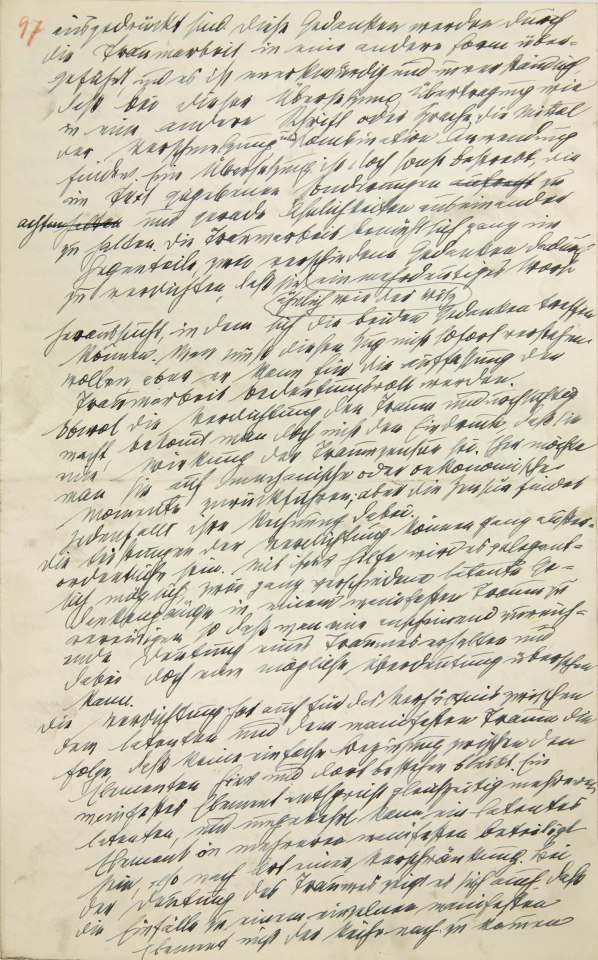 97 ausgedrückt sind. Diese Gedanken werden durch
die Traumarbeit in eine andere Form über-
geführt und es ist merkwürdig und unverständlich
daß bei dieser Übersetzung, Übertragung wie
in eine andere Schrift oder Sprache, die Mittel
der Verschmelzung und Kombination Anwendung
finden. Eine Übersetzung ist doch sonst bestrebt, die
im Text gegebenen Sonderungen zu
achten und gerade Ähnlichkeiten auseinander
zu halten. Die Traumarbeit bemüht sich ganz im
Gegenteile, zwei verschiedene Gedanken dadurch
zu verdichten, daß sie ein mehrdeutiges Wort
ähnlich wie der Witz
heraussucht, in dem sich die beiden Gedanken treffen
können. Man muß diesen Zug nicht sofort verstehen
wollen, aber er kann für die Auffassung der
Traumarbeit bedeutungsvoll werden.
Obwol die Verdichtung den Traum undurchsichtig
macht, bekommt man doch nicht den Eindruck, daß sie
eine Wirkung der Traumzensur sei. Eher möchte
man sie auf mechanische oder oekonomische
Momente zurückführen; aber die Zensur findet
jedenfalls ihre Rechnung dabei.
Die Leistungen der Verdichtung können ganz außer-
ordentliche sein. Mit ihrer Hilfe wird es gelegent-
lich möglich, zwei ganz verschiedene latente Ge-
dankenzüge in einem manifesten Traum zu
vereinigen, so daß man eine anscheinend zureich-
ende Deutung eines Traumes erhalten und
dabei doch eine mögliche Überdeutung übersehen
kann.
Die Verdichtung hat auch für das Verhältnis zwischen
dem latenten und dem manifesten Traum die
Folge, daß keine einfache Beziehung zwischen den
Elementen hier und dort bestehen bleibt. Ein
manifestes Element entspricht gleichzeitig mehreren
latenten, und umgekehrt kann ein latentes
Element an mehreren manifesten beteiligt
sein, also nach Art einer Verschränkung. Bei
der Deutung des Traumes zeigt es sich auch, daß
die Einfälle zu einem einzelnen manifesten
Element nicht der Reihe nach zu kommen